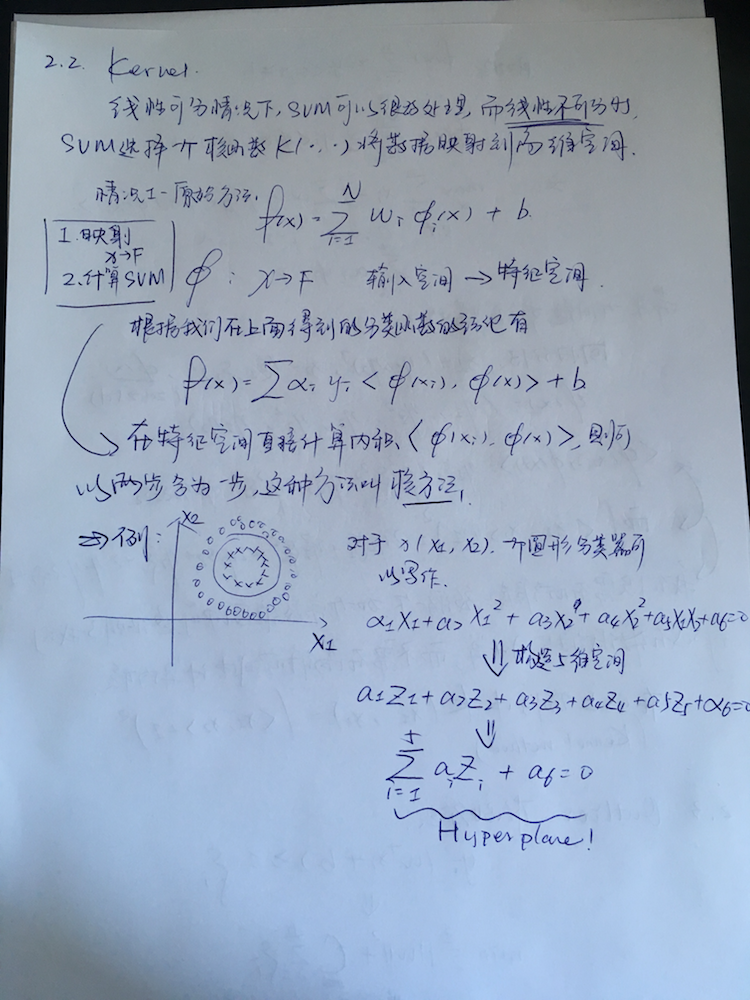 2.2. Kernel.
线性可分情况下, SVM可以很好处理, 而线性不可分时,
SVM选择一个核函数 K(·,·) 将数据映射到高维空间.
情况1-原始方法, f(x) = ∑_{i=1}^{N} w_i φ_i(x) + b.
1.映射
x→F
2.计算SVM
φ : x→F 输入空间 → 特征空间.
根据我们在上面得到的分类函数的形式也有
f(x) = ∑ α_i y_i <φ(x_i), φ(x)> + b
在特征空间直接计算内积 <φ(x_i), φ(x)>, 则可
以两步合为一步, 这种方法叫核方法,
⇒ 例:
X2
X1
对于 x(X1, X2). 一个圆形分类器可
以写作.
a1X1 + a2X1² + a3X2 + a4X2² + a5X1X2 + a6 = 0
⇓ 构造5维空间
a1Z1 + a2Z2 + a3Z3 + a4Z4 + a5Z5 + a6 = 0
⇓
∑_{i=1}^{5} a_i Z_i + a6 = 0
Hyperplane!